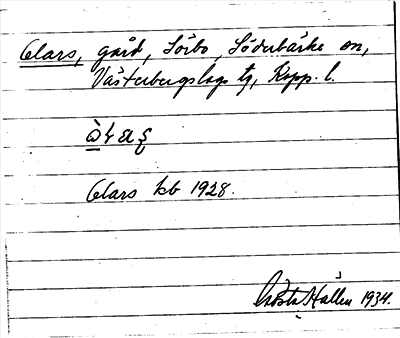 Olars, gård, Sörbo, Söderbärke sn,
Västerbergslags tg, Kopp. l.
Olars kb 1928.
Gösta Hallén 1934.